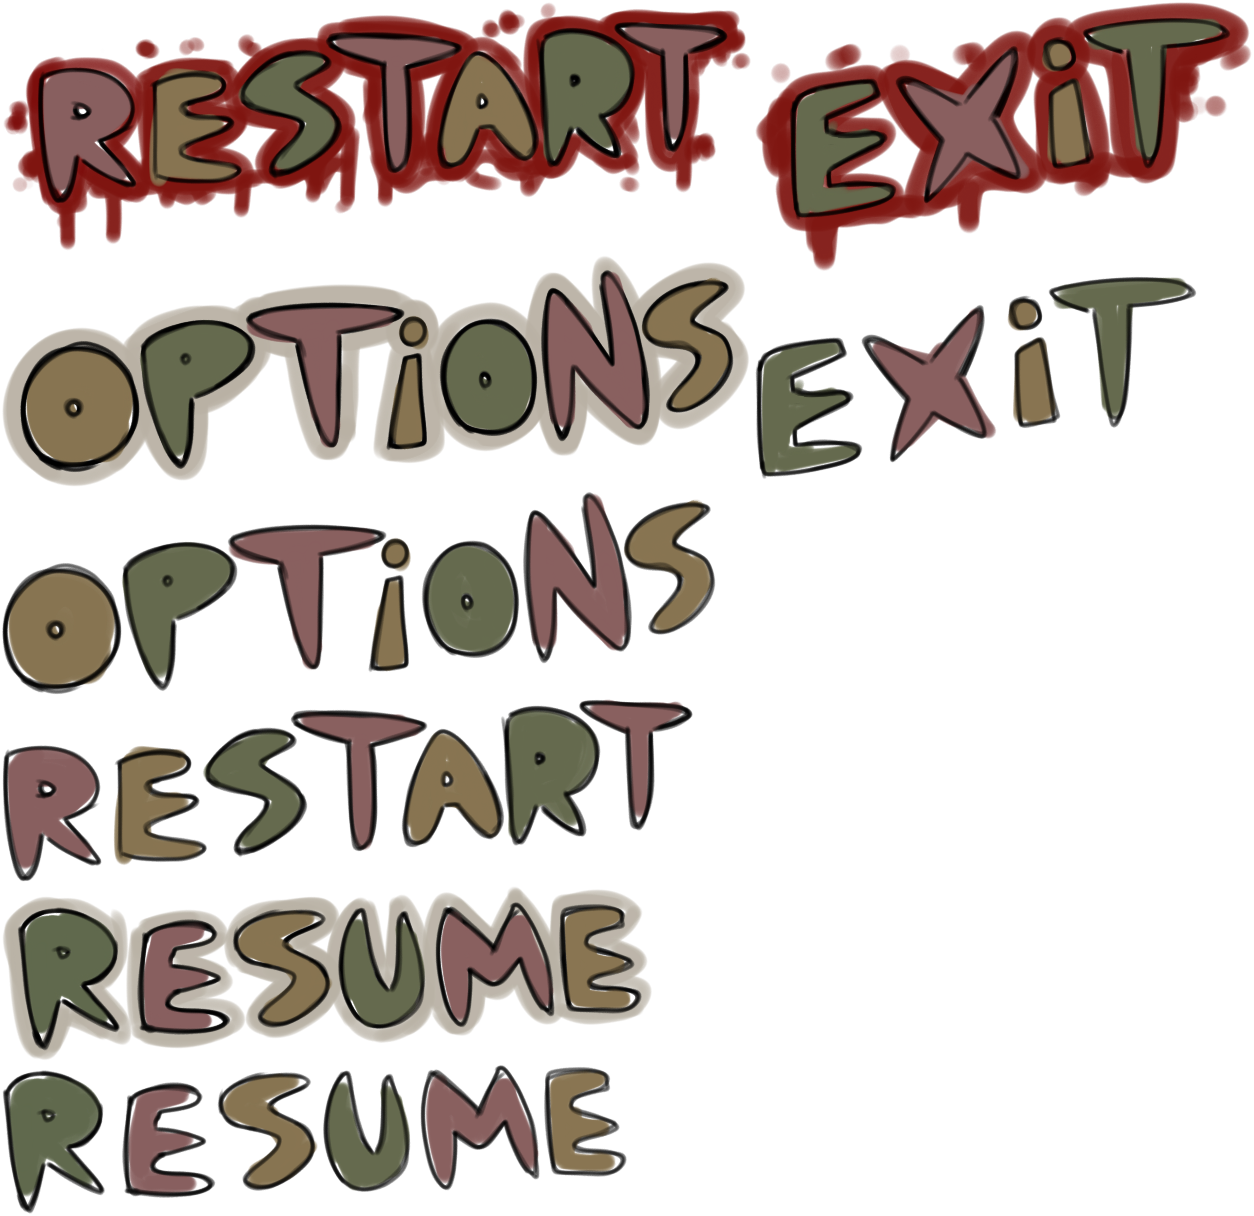 RESTART EXiT
OPTiONS EXiT
OPTiONS
RESTART
RESUME
RESUME